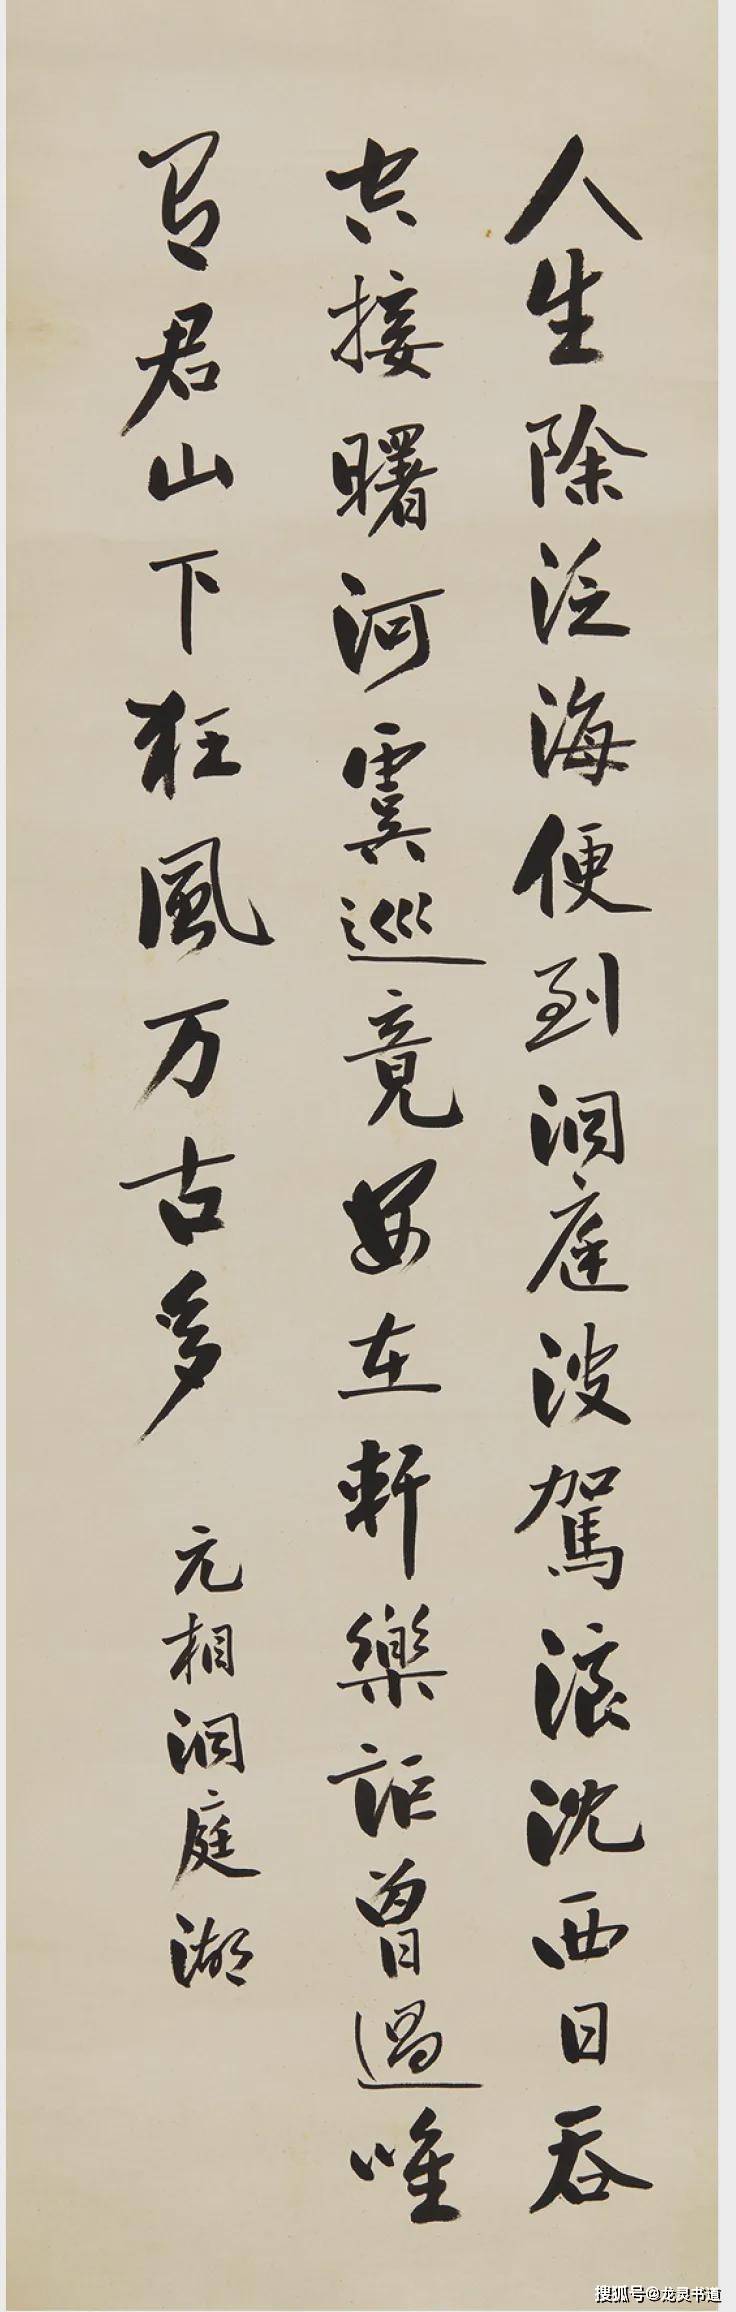 人生除泛海便到洞庭波駕浪沈西日吞
空接曙河虞巡竟安在軒樂詎曾過唯
有君山下狂風万古多
元相洞庭湖
搜狐号@龙灵书道